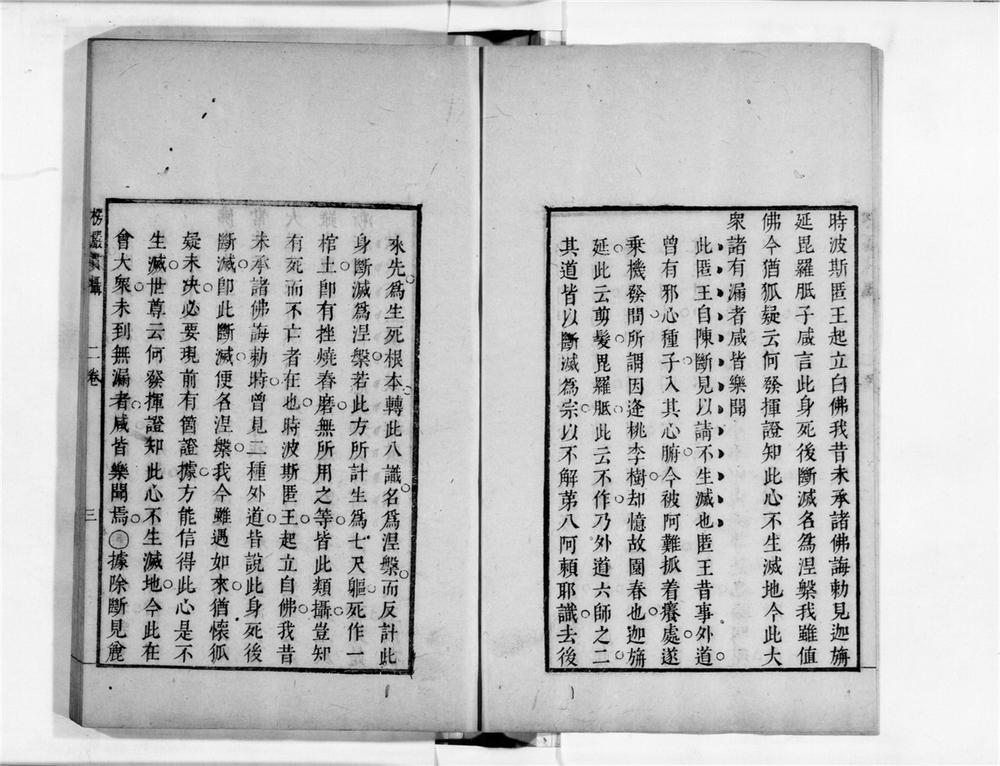 時波斯匿王起立白佛我昔未承諸佛誨勅見迦旃
延毘羅胝子咸言此身死後斷滅名爲涅槃我雖值
佛今猶狐疑云何發揮證知此心不生滅地今此大
衆諸有漏者咸皆樂聞
此匿王自陳斷見以請不生滅也匿王昔事外道
曾有邪心種子入其心腑今被阿難抓着癢處遂
乗機發問所謂因逢桃李樹却憶故園春也迦旃
延此云剪髮毘羅胝此云不作乃外道六師之二
其道皆以斷滅爲宗以不解第八阿頼耶識去後
來先爲生死根本轉此八識名爲涅槃而反計此
身斷滅爲涅槃若此方所計生爲七尺軀死作一
棺土卽有挫燒舂磨無所用之等皆此類攝豈知
有死而不亡者在也時波斯匿王起立白佛我昔
未承諸佛誨勅時曾見二種外道皆說此身死後
斷滅卽此斷滅便名涅槃我今雖遇如來猶懷狐
疑未决必要現前有箇證據方能信得此心是不
生滅世尊云何發揮證知此心不生滅地今此在
會大衆未到無漏者咸皆樂聞焉○據除斷見麄
楞嚴貫攝 二卷 三